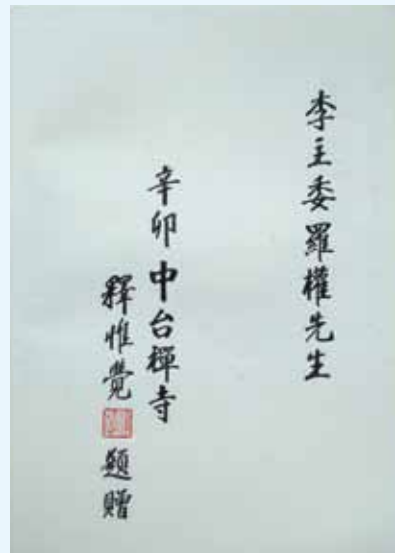 李主委羅權先生
辛卯中台禪寺
釋惟覺題贈